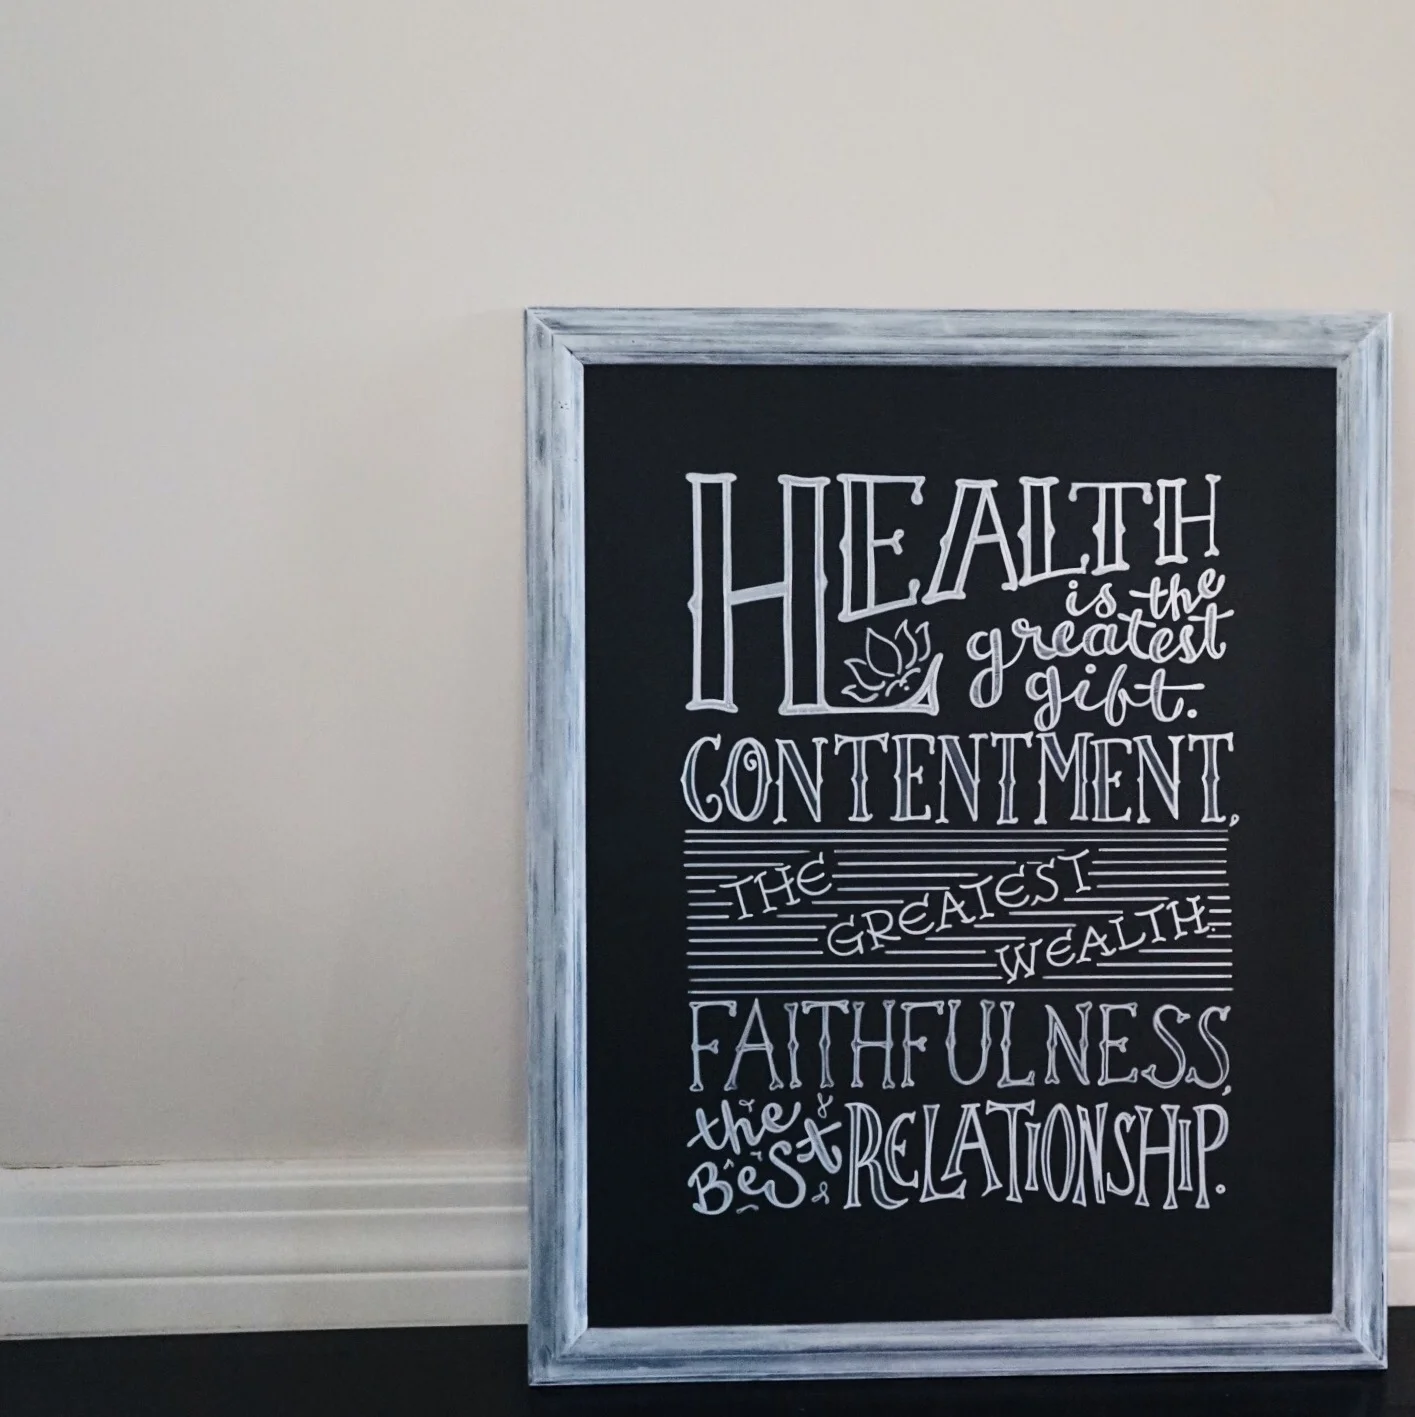 HEALTH
is the
greatest
gift.
CONTENTMENT,
THE
GREATEST
WEALTH.
FAITHFULNESS,
the
BeSt RELATiONSHiP.